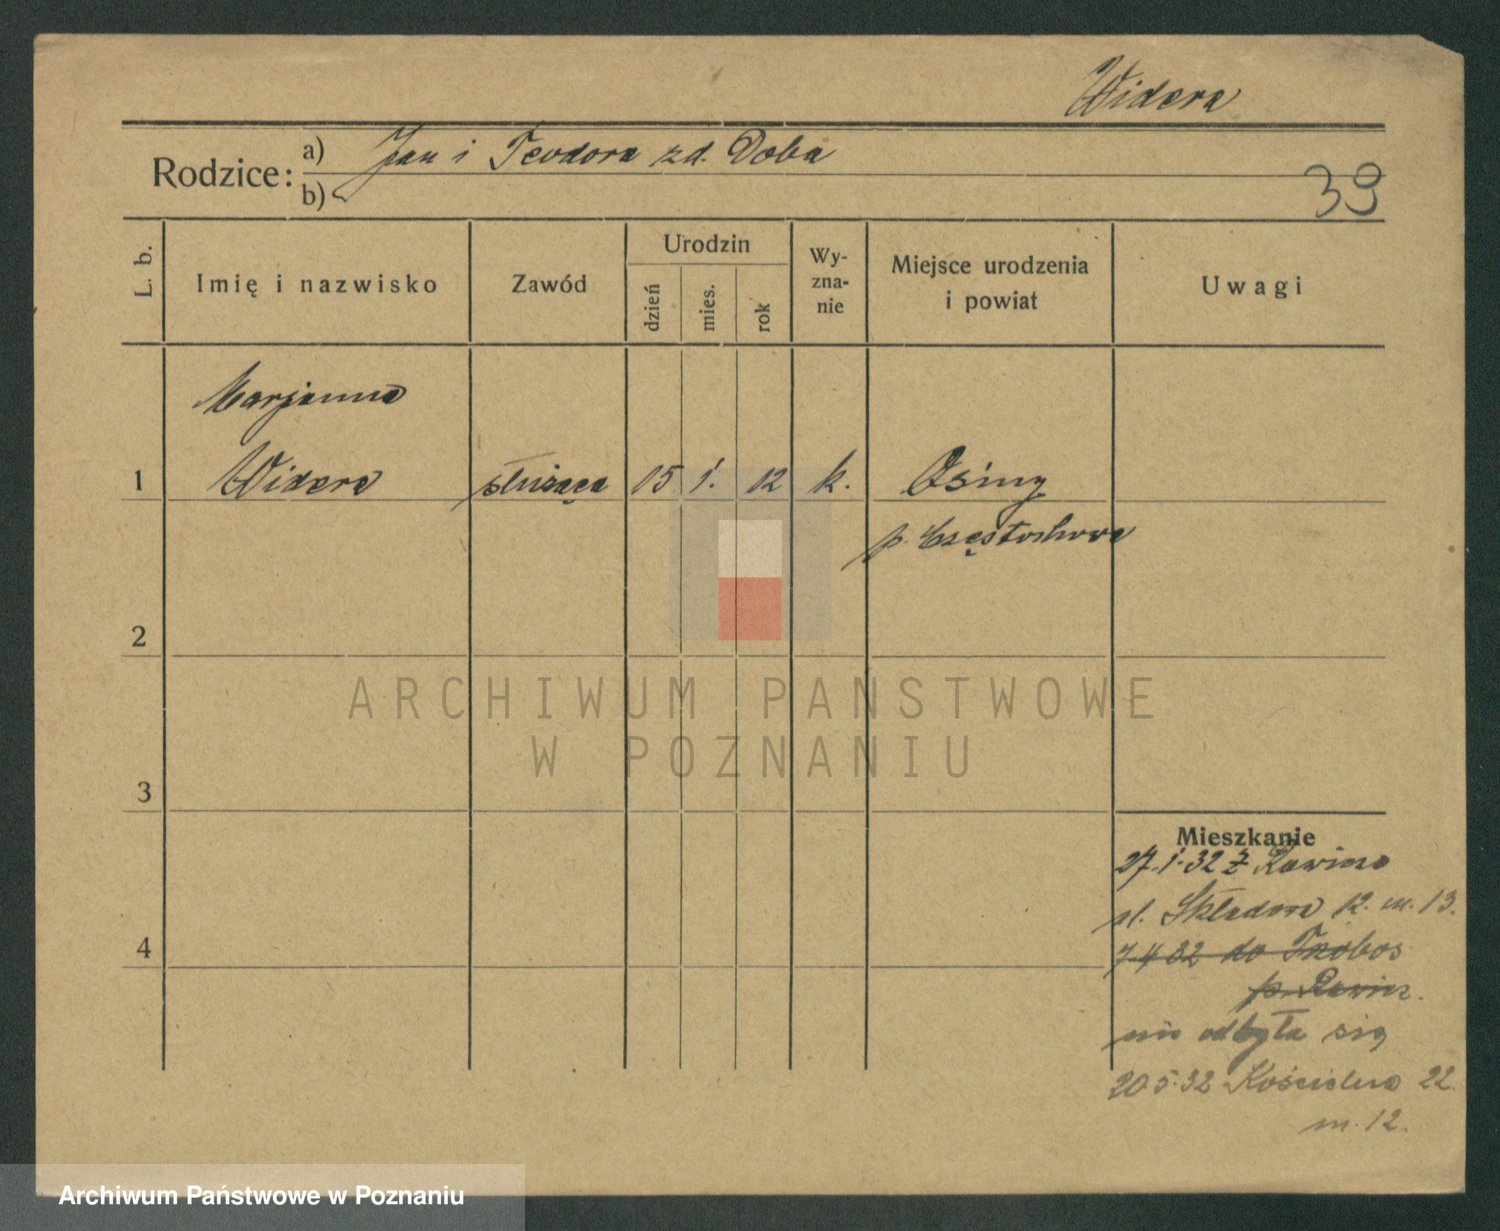 Widera
Rodzice:
a) Jan i Teodora zd. Doba
b)
39
L. b.
Imię i nazwisko
Zawód
Urodzin
dzień
mies.
rok
Wy-
zna-
nie
Miejsce urodzenia
i powiat
Uwagi
Marjanna
1 Widera służąca 15 1. 12 k. Osiny
p. Częstochowa
2
ARCHIWUM PAŃSTWOWE
W POZNANIU
3
Mieszkanie
27.1.32 z
ul. Składowa 12. m. 13.
4
7 4 32 do
nie odbyła się
20.5.32 Kościelna 22.
m. 12.
Archiwum Państwowe w Poznaniu